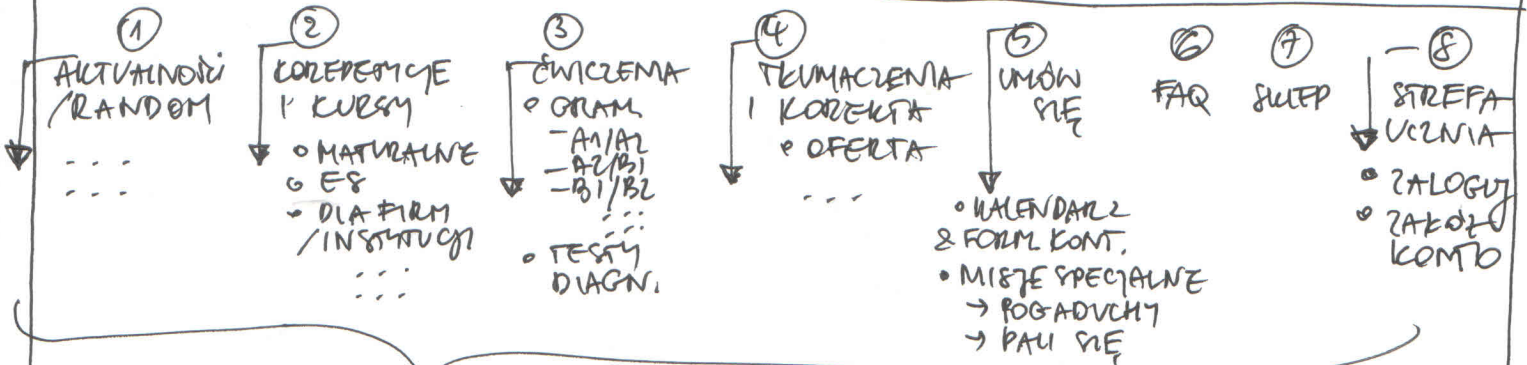 1
AKTUALNOŚCI
/RANDOM
. . .
. . .
2
KOREPETYCJE
I KURSY
• MATURALNE
• E8
• DLA FIRM
/INSTYTUCJI
. . .
. . .
3
ĆWICZENIA
• GRAM.
- A1/A2
- A2/B1
- B1/B2
. . .
. . .
• TESTY
DIAGN.
4
TŁUMACZENIA
I KOREKTA
• OFERTA
. . .
5
UMÓW
SIĘ
• KALENDARZ
& FORM KONT.
• MISJE SPECJALNE
→ POGADUCHY
→ PALI SIĘ
6
FAQ
7
SKLEP
8
STREFA
UCZNIA
• ZALOGUJ
• ZAŁÓŻ
KONTO